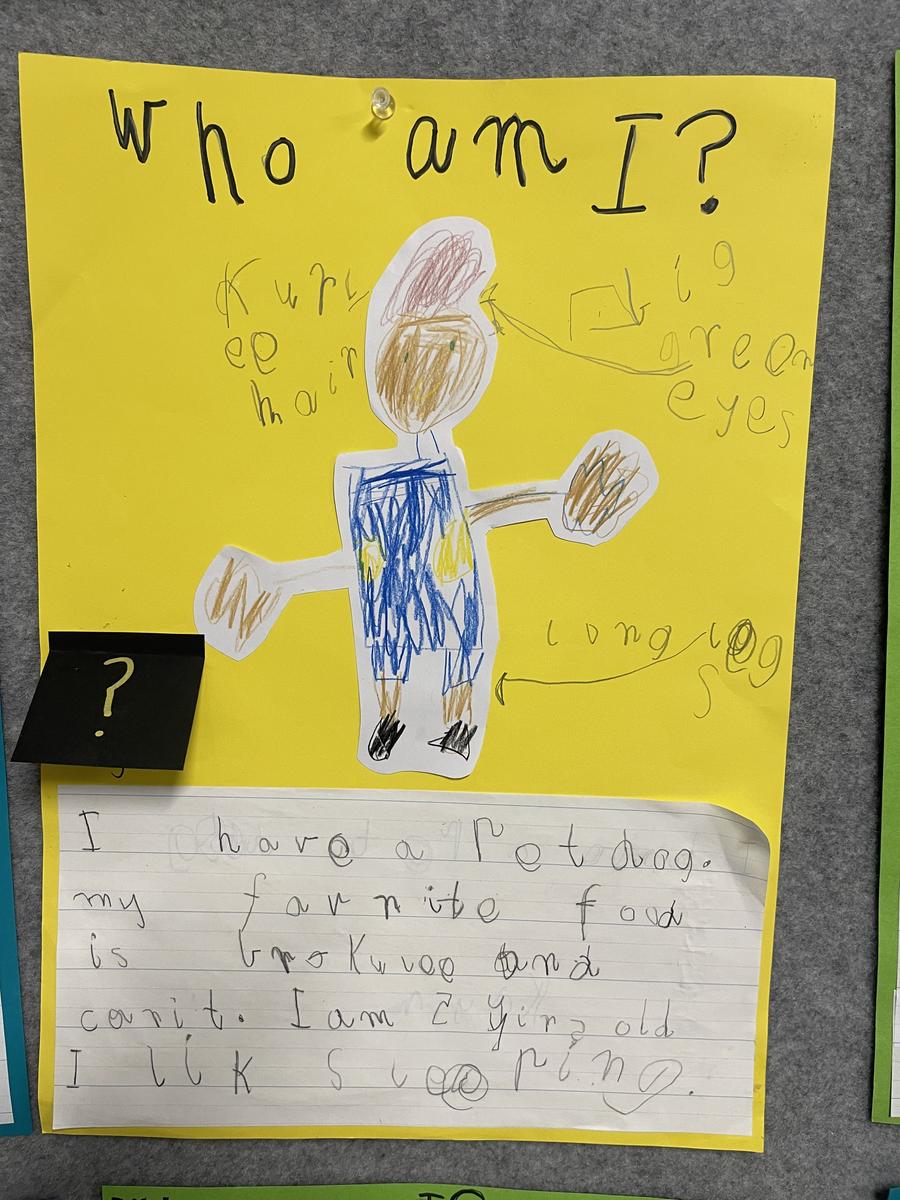 Who am I?
Kurl
ee
hair
big
green
eyes
long leg
s
?
I have a Pet dog.
my favrite food
is brokulee and
carit. I am 2 Yirs old
I lik sleeping.